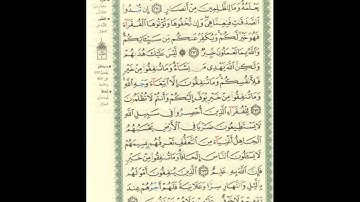 يَعْلَمُهُ وَمَا لِلظَّالِمِينَ مِنْ أَنصَارٍ ﴿٢٧٠﴾ إِن تُبْدُوا
الصَّدَقَاتِ فَنِعِمَّا هِيَ وَإِن تُخْفُوهَا وَتُؤْتُوهَا الْفُقَرَاءَ
فَهُوَ خَيْرٌ لَّكُمْ وَيُكَفِّرُ عَنكُم مِّن سَيِّئَاتِكُمْ
وَاللَّهُ بِمَا تَعْمَلُونَ خَبِيرٌ ﴿٢٧١﴾ لَّيْسَ عَلَيْكَ هُدَاهُمْ
وَلَٰكِنَّ اللَّهَ يَهْدِي مَن يَشَاءُ وَمَا تُنفِقُوا مِنْ خَيْرٍ
فَلِأَنفُسِكُمْ وَمَا تُنفِقُونَ إِلَّا ابْتِغَاءَ وَجْهِ اللَّهِ
وَمَا تُنفِقُوا مِنْ خَيْرٍ يُوَفَّ إِلَيْكُمْ وَأَنتُمْ لَا تُظْلَمُونَ
﴿٢٧٢﴾ لِلْفُقَرَاءِ الَّذِينَ أُحْصِرُوا فِي سَبِيلِ اللَّهِ
لَا يَسْتَطِيعُونَ ضَرْبًا فِي الْأَرْضِ يَحْسَبُهُمُ
الْجَاهِلُ أَغْنِيَاءَ مِنَ التَّعَفُّفِ تَعْرِفُهُم بِسِيمَاهُمْ
لَا يَسْأَلُونَ النَّاسَ إِلْحَافًا وَمَا تُنفِقُوا مِنْ خَيْرٍ
فَإِنَّ اللَّهَ بِهِ عَلِيمٌ ﴿٢٧٣﴾ الَّذِينَ يُنفِقُونَ أَمْوَالَهُم
بِاللَّيْلِ وَالنَّهَارِ سِرًّا وَعَلَانِيَةً فَلَهُمْ أَجْرُهُمْ عِندَ